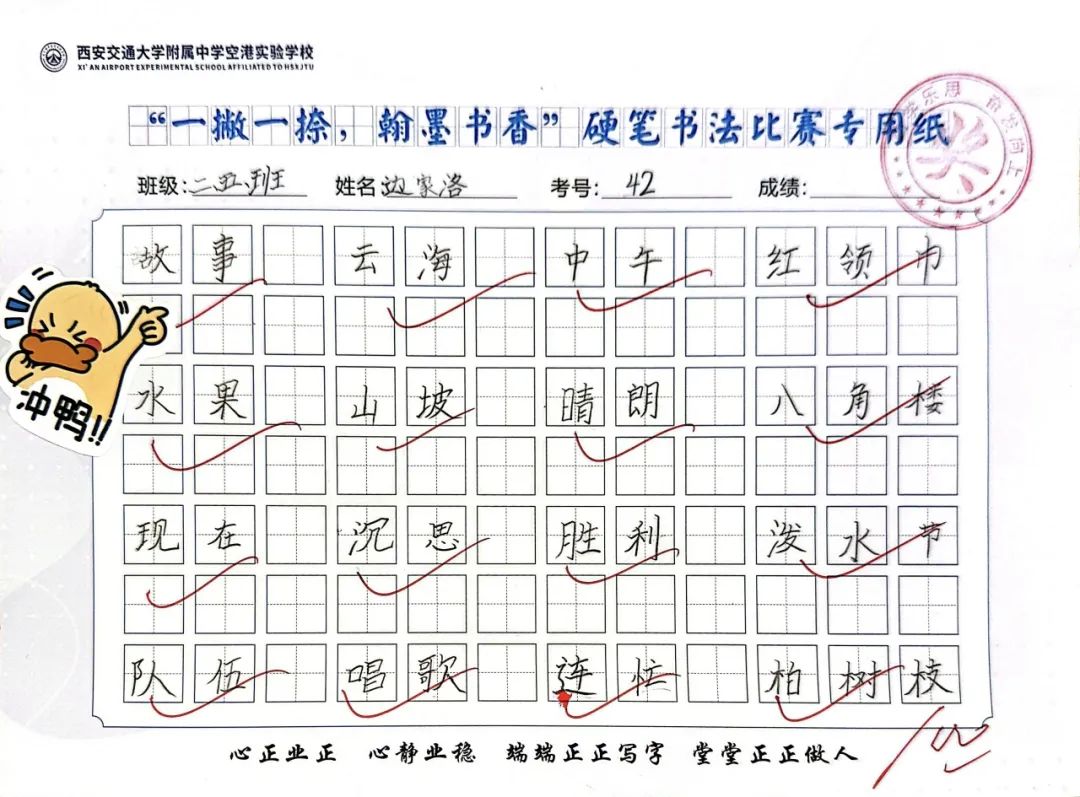 西安交通大学附属中学空港实验学校
XI'AN AIRPORT EXPERIMENTAL SCHOOL AFFILIATED TO HSXJTU
“一撇一捺，翰墨书香”硬笔书法比赛专用纸
乐思 奋发向上
兴
班级:二五班 姓名边家洛 考号: 42 成绩:
故事 云海 中午 红领巾
水果 山坡 晴朗 八角楼
冲鸭!!
现在 沉思 胜利 泼水节
队伍 唱歌 连忙 柏树枝
100
心正业正 心静业稳 端端正正写字 堂堂正正做人